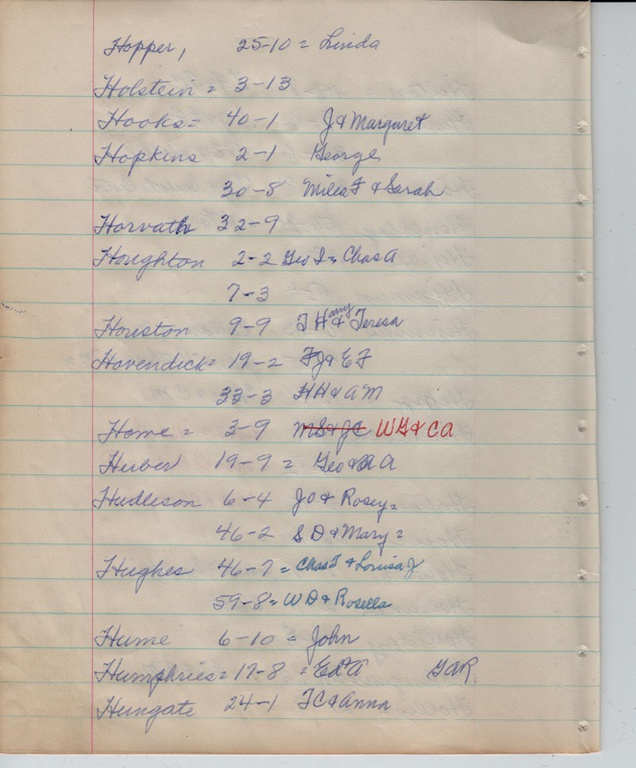 Hopper, 25-10 = Linda
Holstein = 3-13
Hooks = 40-1 J & Margaret
Hopkins 2-1 George
30-8 Miles F & Sarah
Horvath 32-9
Houghton 2-2 Geo I = Chas A
7-3
Houston 9-9 T Harry & Teresa
Hovendick = 19-2 FJ & EF
33-3 HH & AM
Home = 3-9 MS & JC WG & CA
Huber 19-9 = Geo & A
Hudleson 6-4 JO & Rosey =
46-2 S D & Mary =
Hughes 46-7 = Chas F & Louisa J
59-8 = WD & Rosella
Hume 6-10 = John
Humphries = 17-8 = Ed A GAR
Hungate 24-1 TC & Anna